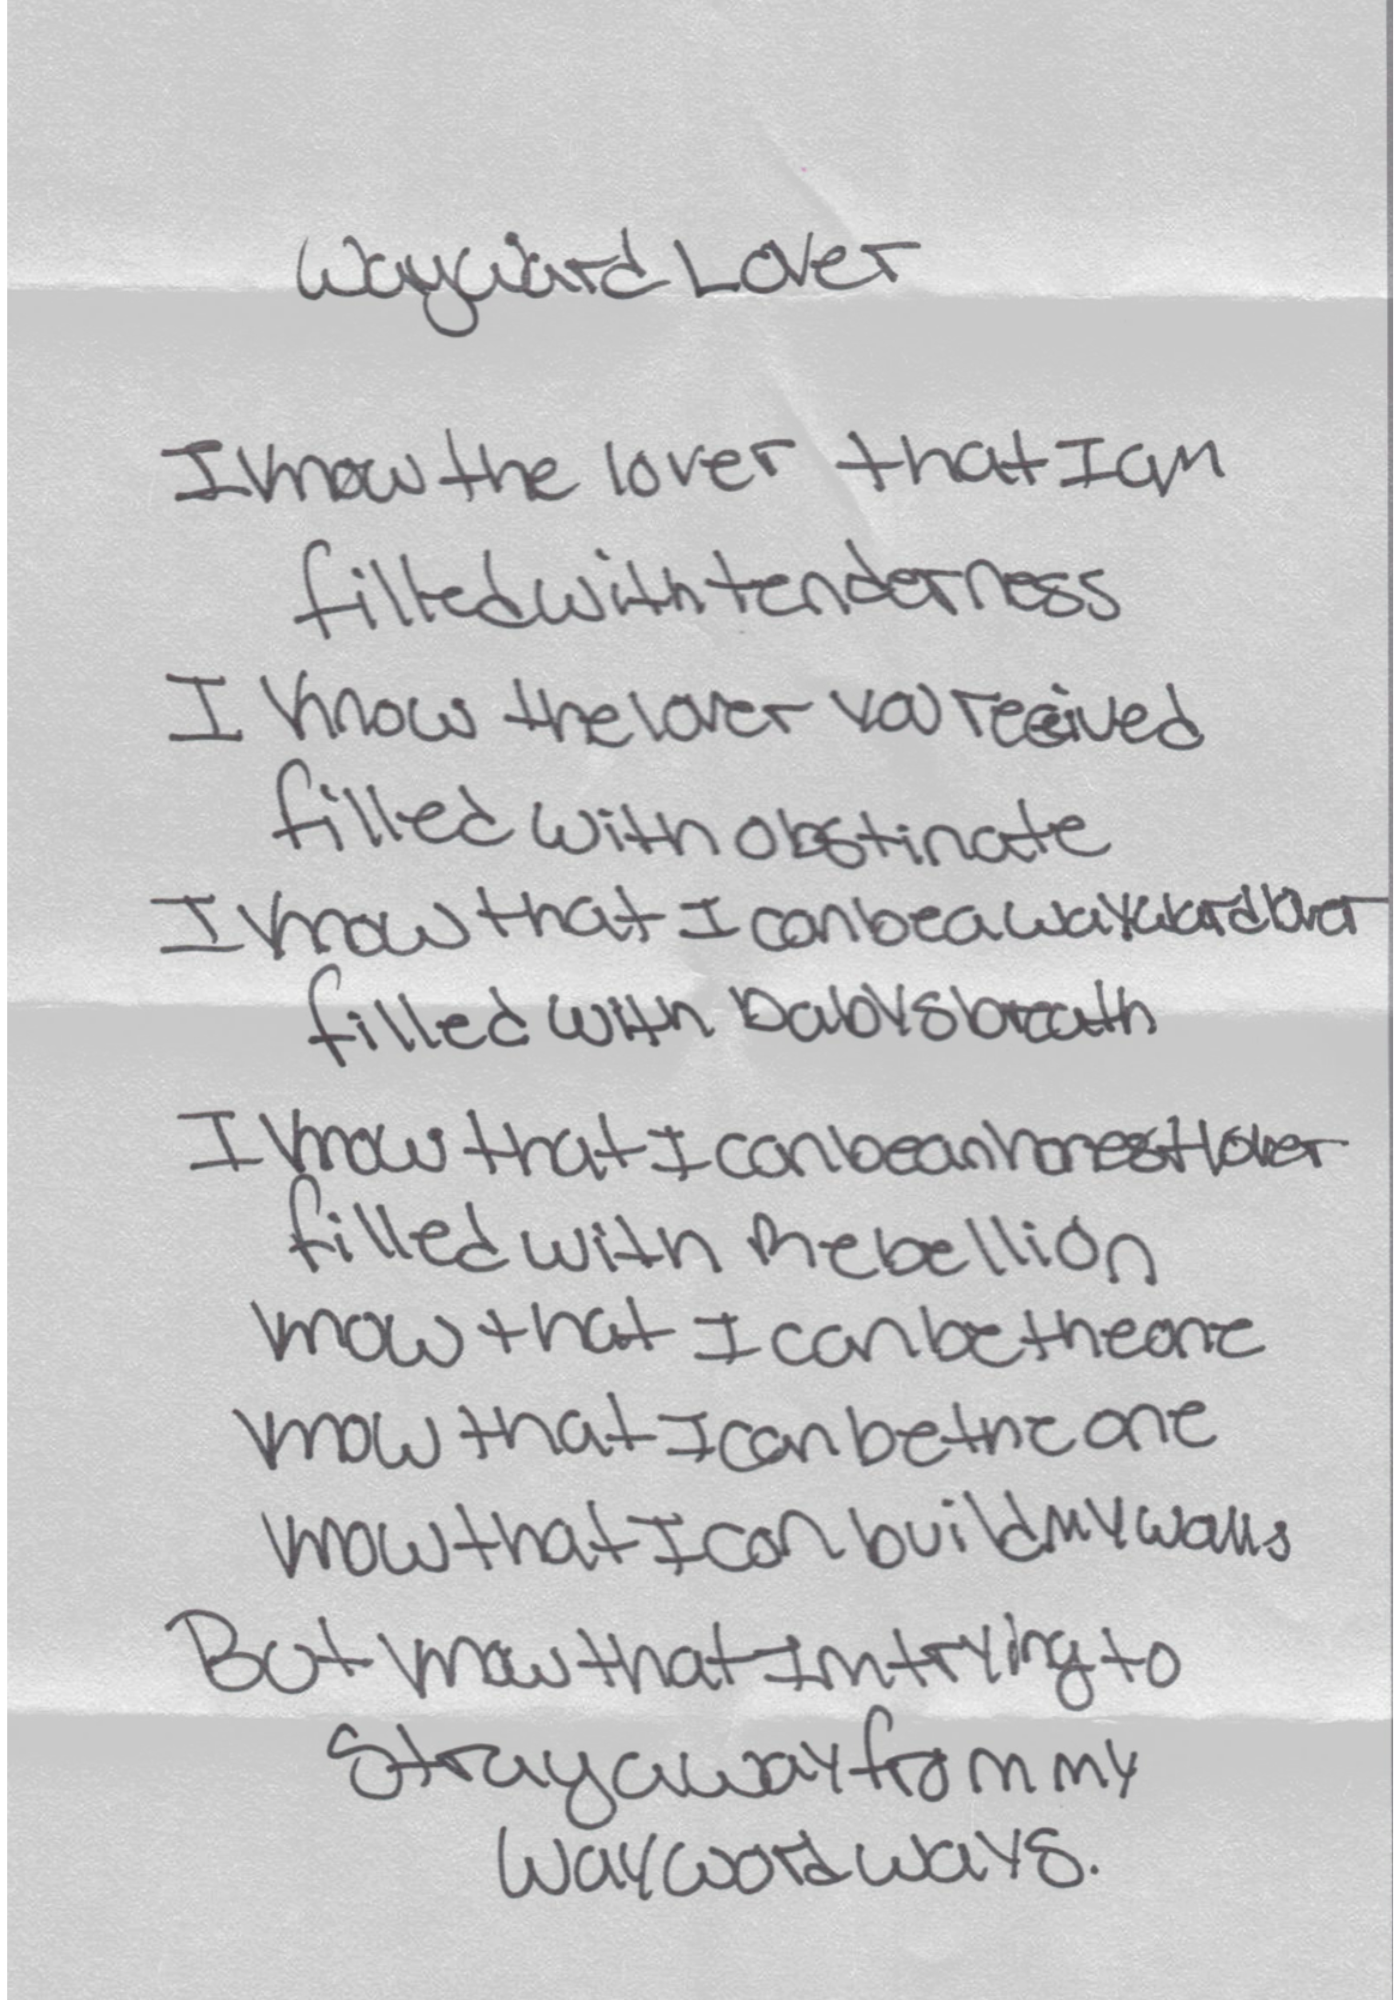 Wayward Lover
I know the lover that I am
filled with tenderness
I know the lover you received
filled with obstinate
I know that I can be a wayward lover
filled with babys breath
I know that I can be an honest lover
filled with Rebellion
know that I can be the one
know that I can be the one
know that I can build my walls
But know that Im trying to
stray away from my
wayword ways.